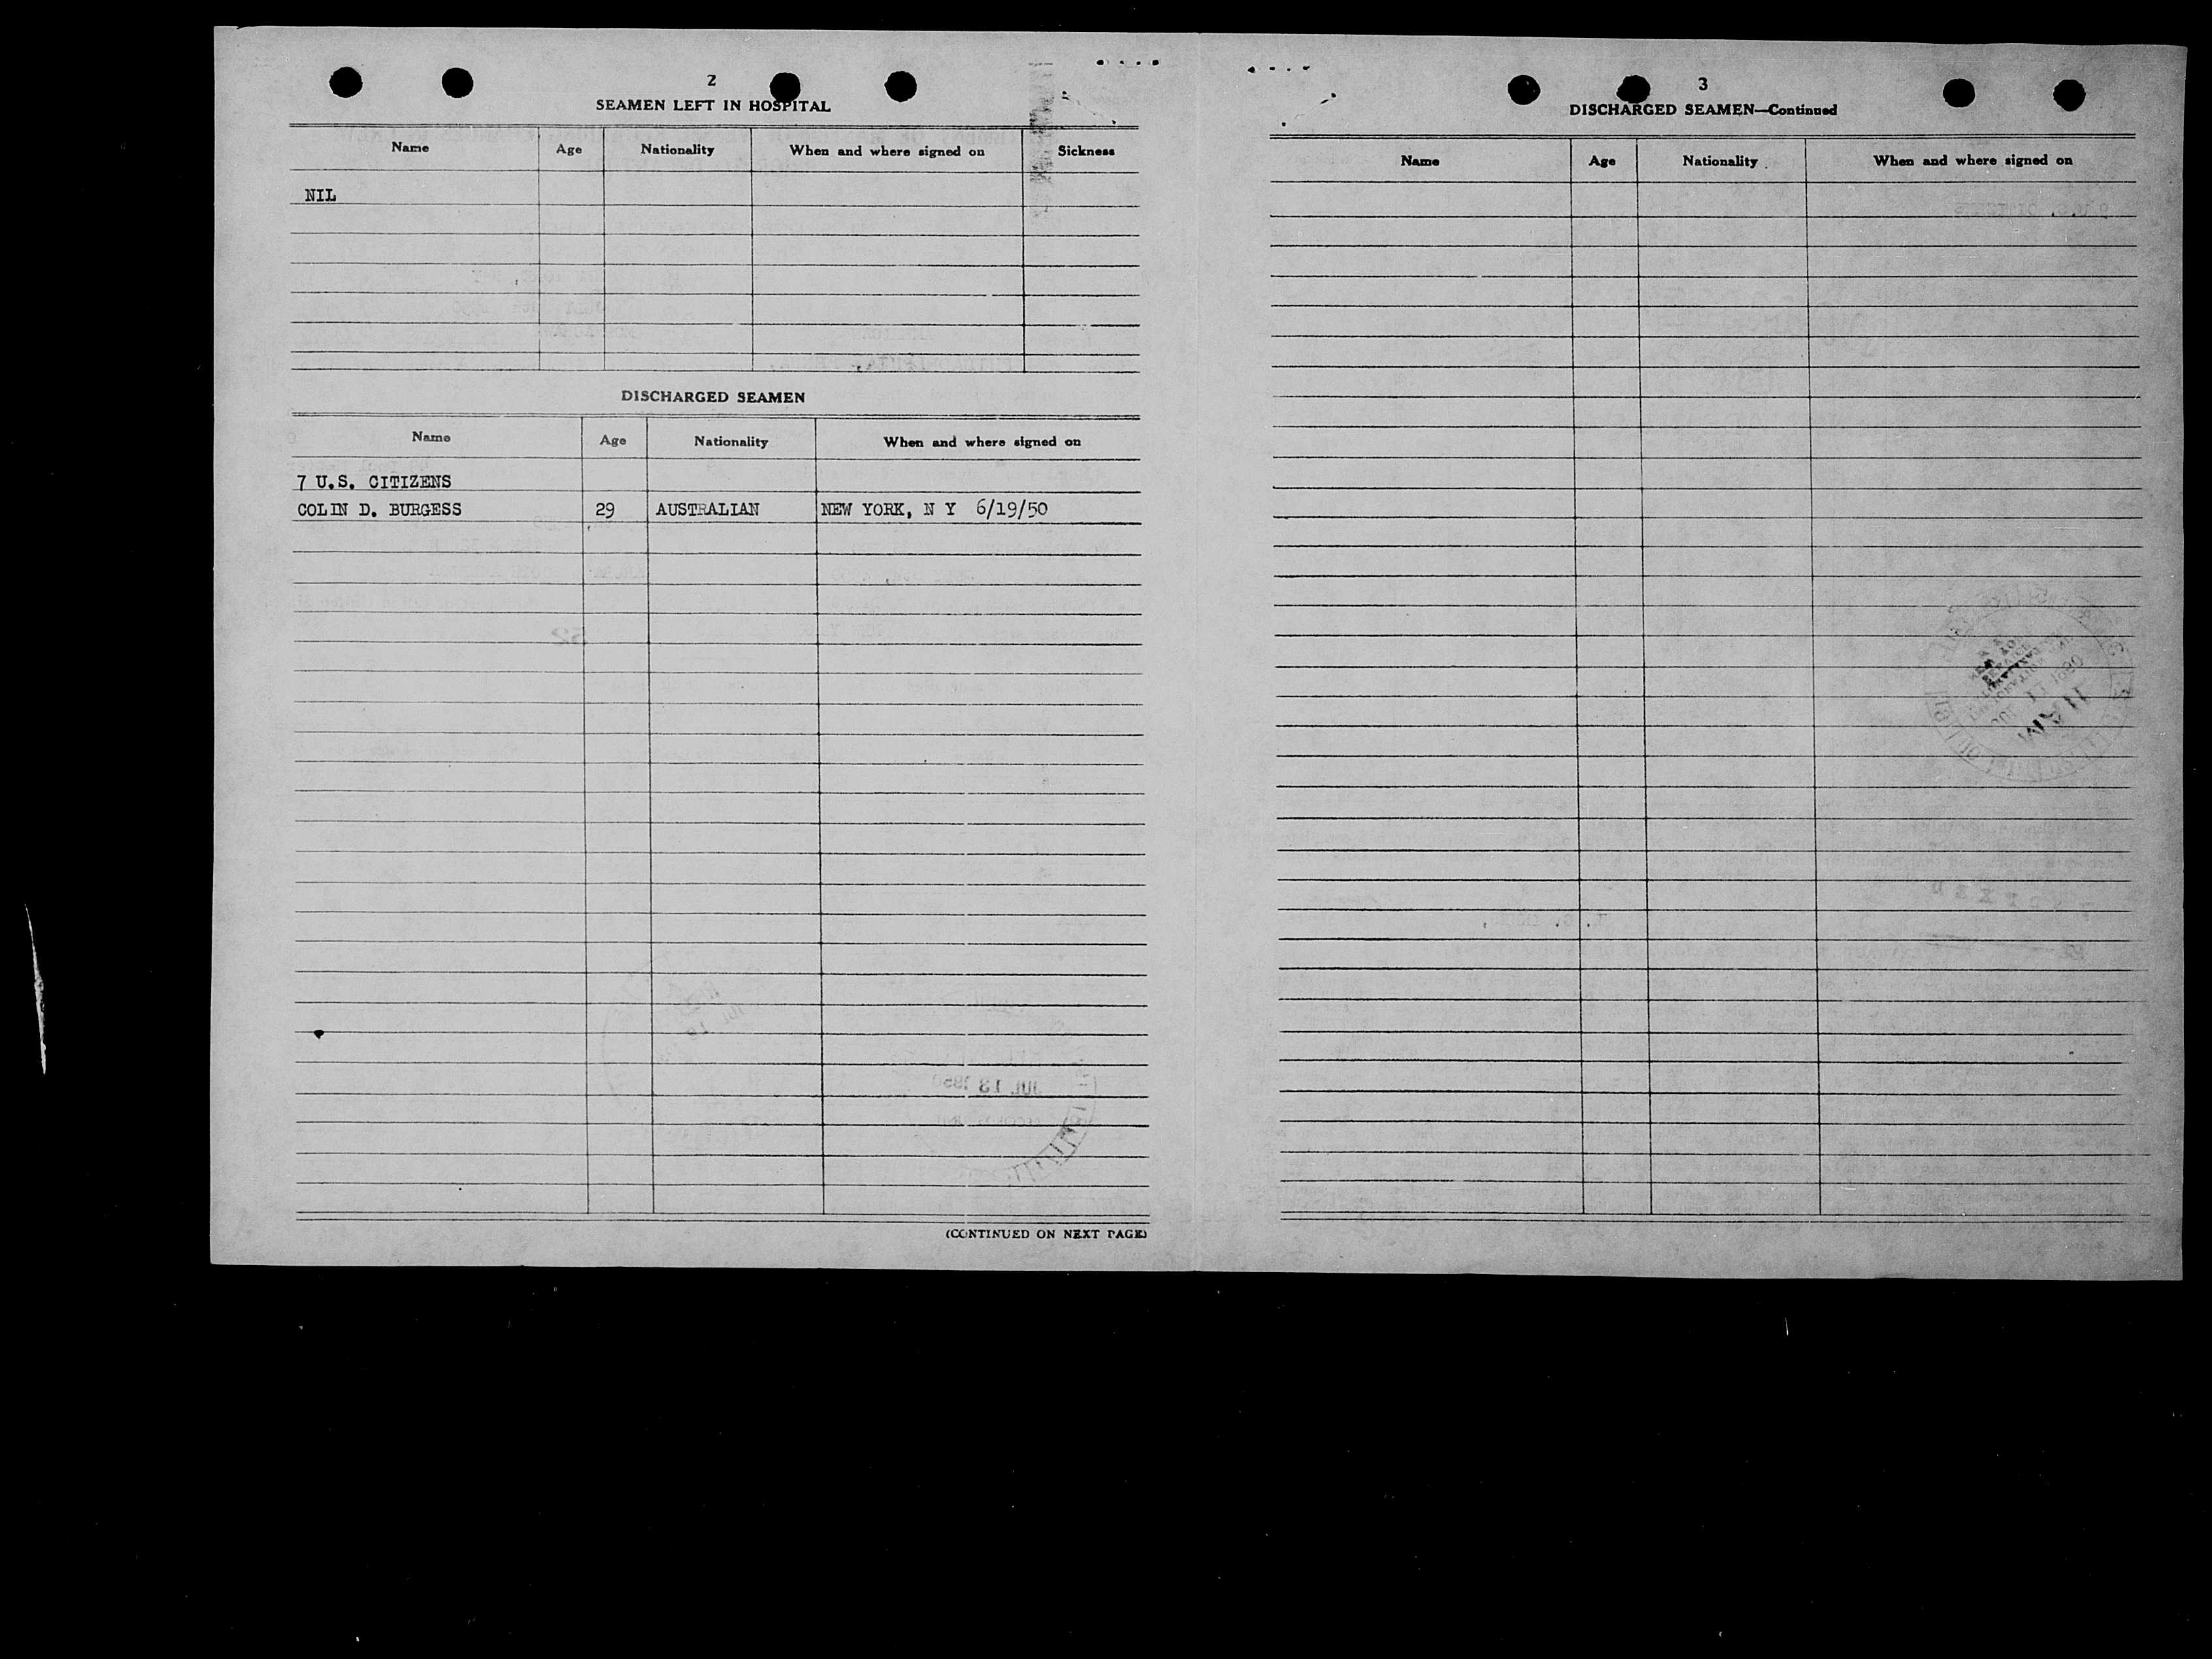 2
SEAMEN LEFT IN HOSPITAL
Name Age Nationality When and where signed on Sickness
NIL
DISCHARGED SEAMEN
Name Age Nationality When and where signed on
7 U.S. CITIZENS
COLIN D. BURGESS 29 AUSTRALIAN NEW YORK, N Y 6/19/50
JUL 13 1950
(CONTINUED ON NEXT PAGE)
3
DISCHARGED SEAMEN—Continued
Name Age Nationality When and where signed on
11 AM